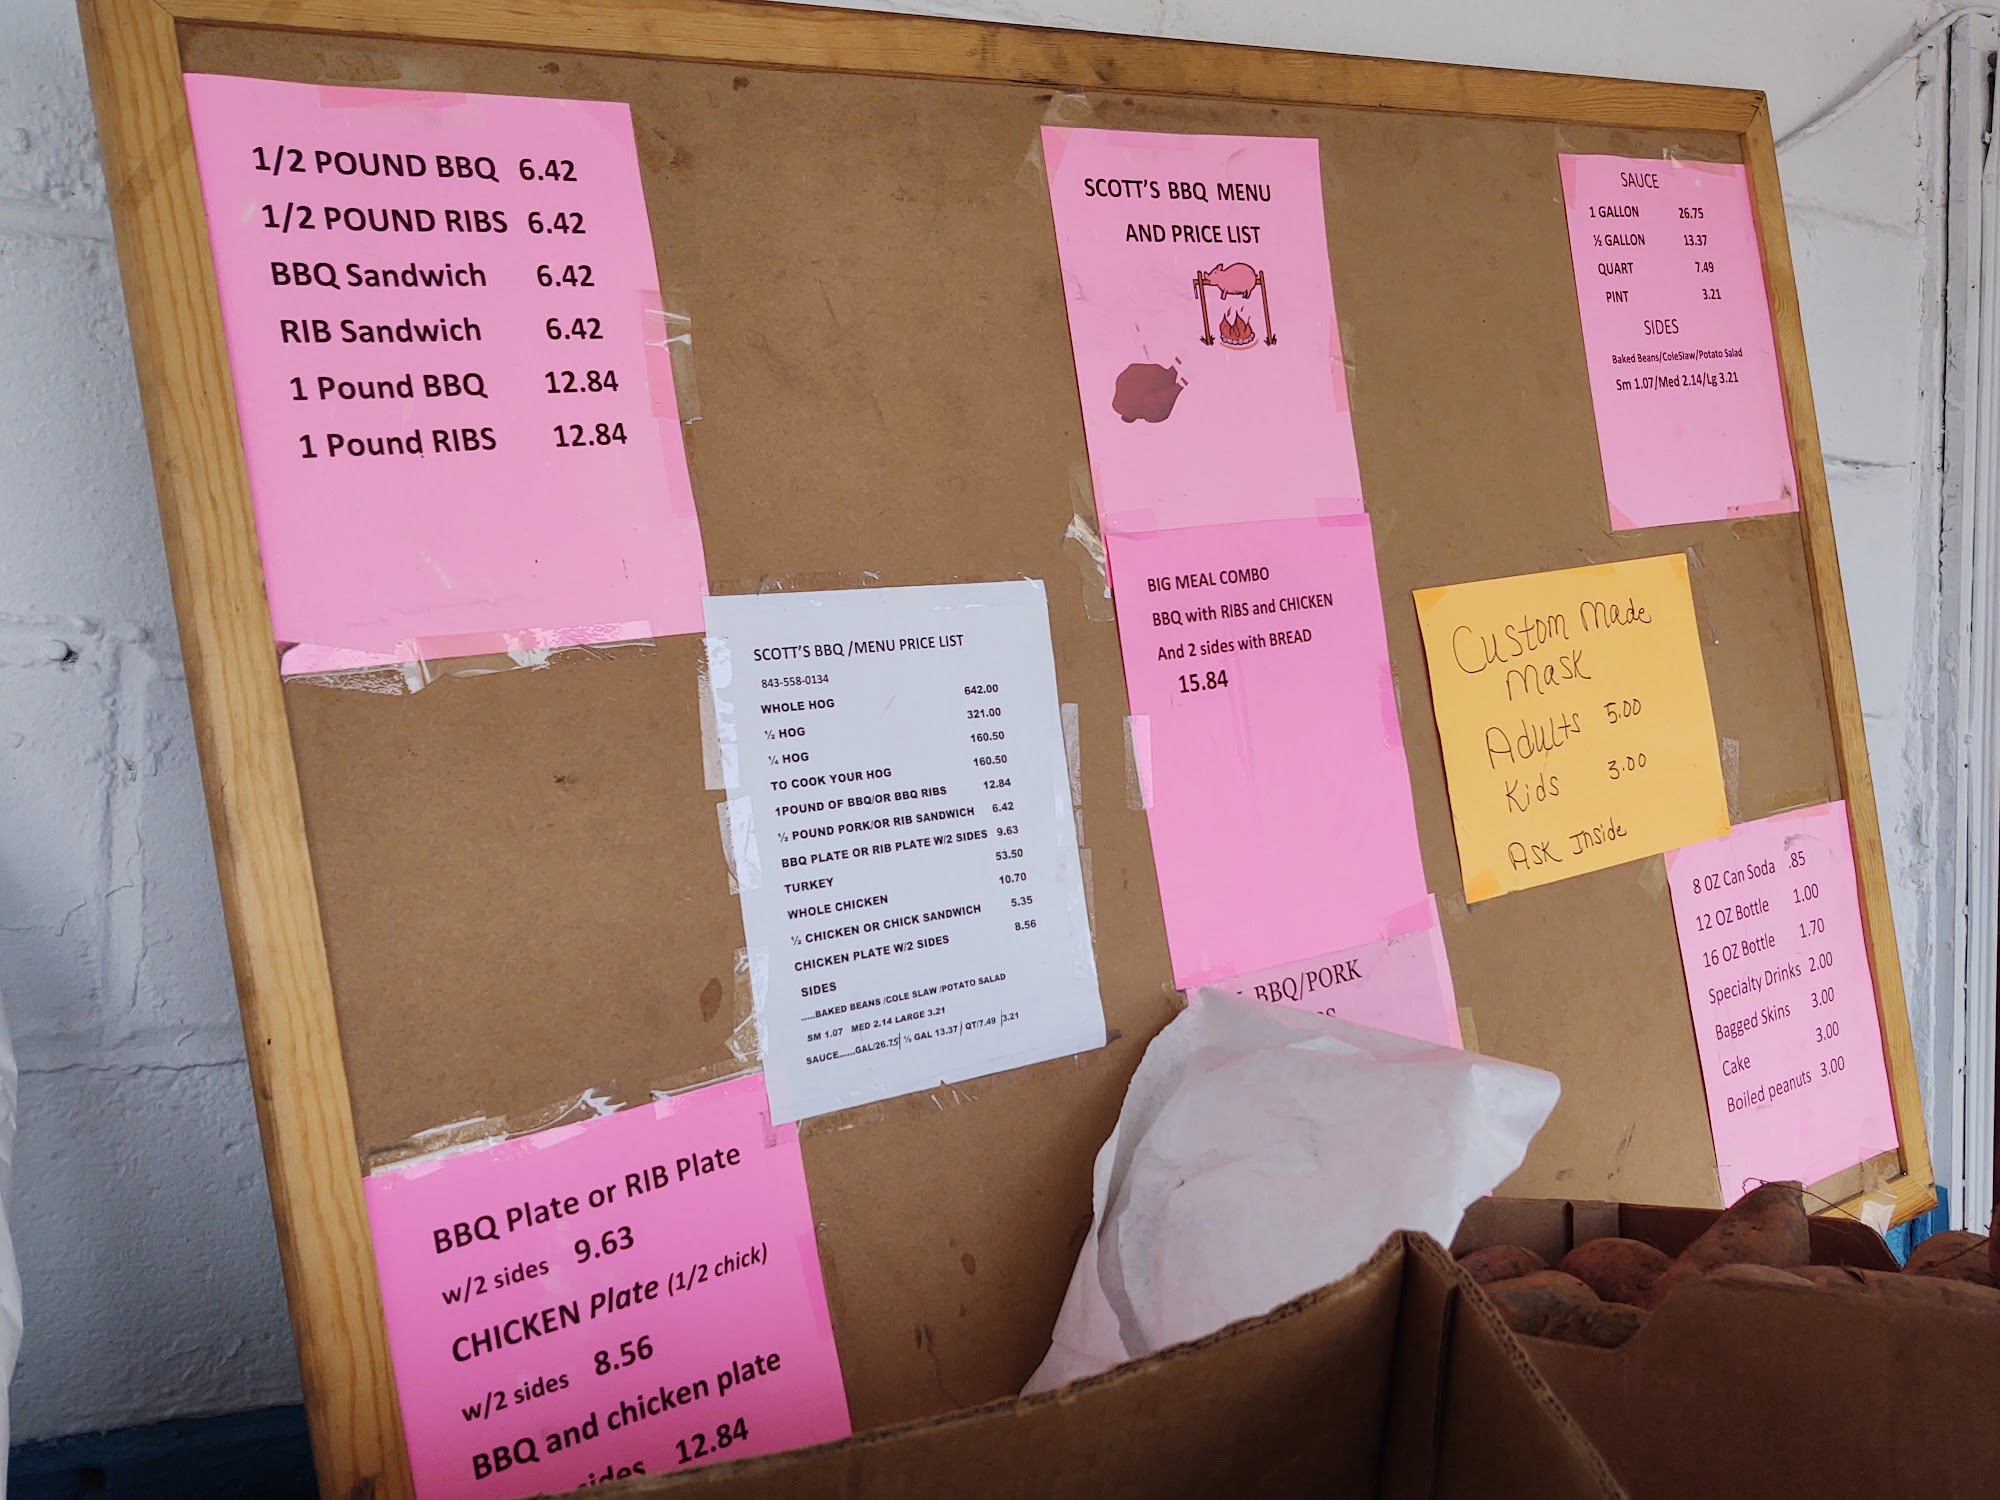 1/2 POUND BBQ 6.42
1/2 POUND RIBS 6.42
BBQ Sandwich 6.42
RIB Sandwich 6.42
1 Pound BBQ 12.84
1 Pound RIBS 12.84
SCOTT'S BBQ MENU
AND PRICE LIST
SAUCE
1 GALLON 26.75
½ GALLON 13.37
QUART 7.49
PINT 3.21
SIDES
Baked Beans/ColeSlaw/Potato Salad
Sm 1.07/Med 2.14/Lg 3.21
SCOTT'S BBQ /MENU PRICE LIST
843-558-0134
WHOLE HOG 642.00
½ HOG 321.00
¼ HOG 160.50
TO COOK YOUR HOG 160.50
1POUND OF BBQ/OR BBQ RIBS 12.84
½ POUND PORK/OR RIB SANDWICH 6.42
BBQ PLATE OR RIB PLATE W/2 SIDES 9.63
TURKEY 53.50
WHOLE CHICKEN 10.70
½ CHICKEN OR CHICK SANDWICH 5.35
CHICKEN PLATE W/2 SIDES 8.56
SIDES
.....BAKED BEANS /COLE SLAW /POTATO SALAD
SM 1.07 MED 2.14 LARGE 3.21
SAUCE......GAL/26.75/ ½ GAL 13.37/ QT/7.49 /3.21
BIG MEAL COMBO
BBQ with RIBS and CHICKEN
And 2 sides with BREAD
15.84
Custom Made
Mask
Adults 5.00
Kids 3.00
Ask Inside
BBQ/PORK
8 OZ Can Soda .85
12 OZ Bottle 1.00
16 OZ Bottle 1.70
Specialty Drinks 2.00
Bagged Skins 3.00
Cake 3.00
Boiled peanuts 3.00
BBQ Plate or RIB Plate
w/2 sides 9.63
CHICKEN Plate (1/2 chick)
w/2 sides 8.56
BBQ and chicken plate
sides 12.84